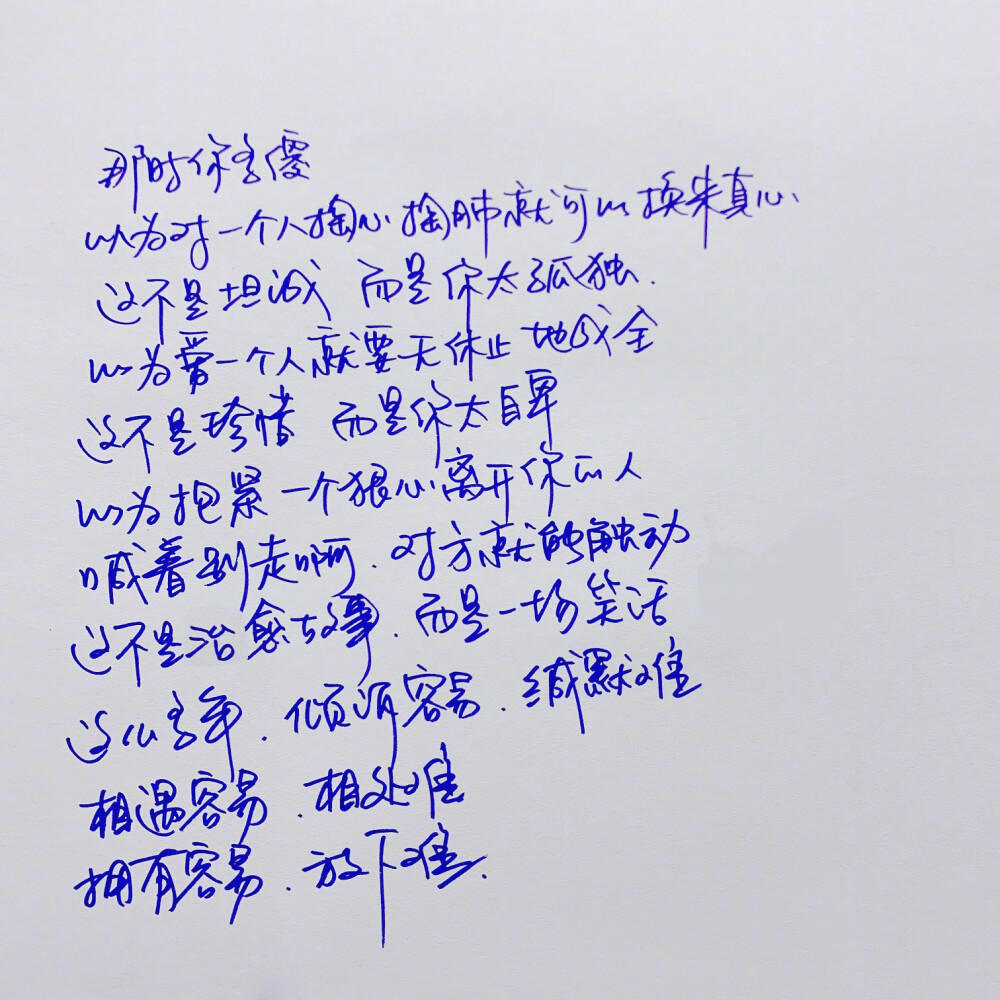 那时你多傻
以为对一个人掏心掏肺就可以换来真心
这不是坦诚 而是你太孤独.
以为爱一个人就要无休止地成全
这不是珍惜 而是你太自卑
以为抱紧一个狠心离开你的人
喊着别走啊.对方就能触动
这不是治愈故事.而是一场笑话
这么多年.倾诉容易.缄默难
相遇容易.相处难
拥有容易.放下难.